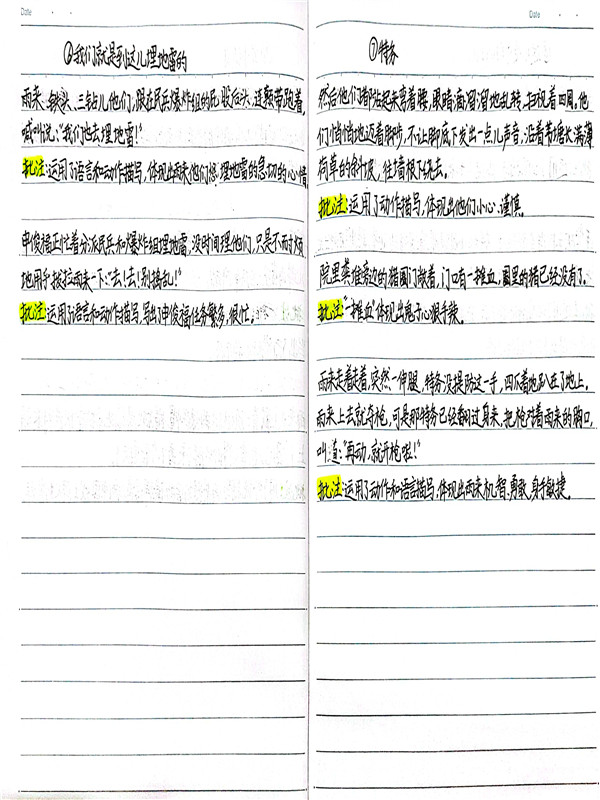 Date
⑥我们就是到这儿埋地雷的
雨来、铁头、三钻儿他们,跟在民兵爆炸组的屁股后头,连颠带跑着,
喊叫说:"我们也去埋地雷!"
批注:运用了语言和动作描写,体现出雨来他们想埋地雷的急切的心情
申俊福正忙着分派民兵和爆炸组埋地雷,没时间理他们,只是不耐烦
地用手拨拉雨来一下:"去!去!别捣乱!"
批注:运用了语言和动作描写,写出了申俊福任务繁多,很忙。
Date
⑦特务
然后他们站起来弯着腰,眼睛滴溜溜地乱转,扫视着四周。他
们悄悄地迈着脚步,不让脚底下发出一点儿声音,沿着长满薄
荷草的斜坡,往墙根下绕去。
批注:运用了动作描写,体现出他们小心、谨慎。
院里粪堆旁边的猪圈门敞着,门口有一摊血,圈里的猪已经没有了。
批注:"一摊血"体现出鬼子心狠手辣。
雨来走着走着,突然一伸腿,特务没提防这一手,四爪着地趴在了地上。
雨来上去就夺枪,可是那特务已经翻过身来,把枪对着雨来的胸口,
叫道:"再动,就开枪啦!"
批注:运用了动作和语言描写,体现出雨来机智、勇敢,身手敏捷。